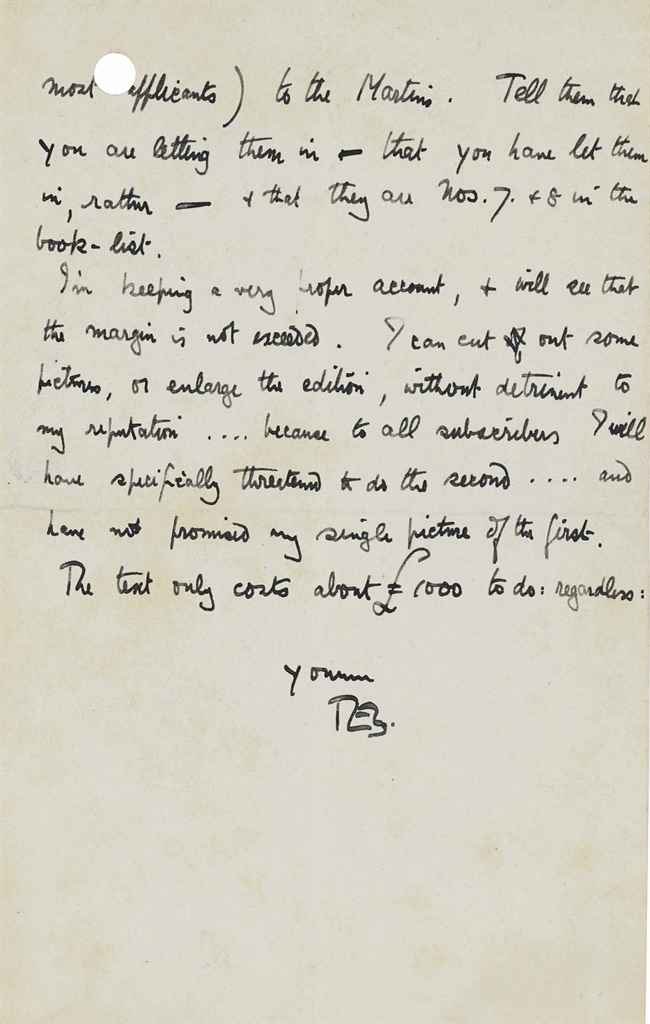 most applicants) to the Martins. Tell them that
you are letting them in — that you have let them
in, rather — & that they are Nos. 7. & 8 in the
book-list.
I'm keeping a very proper account, & will see that
the margin is not exceeded. I can cut out some
pictures, or enlarge the edition, without detriment to
my reputation .... because to all subscribers I will
have specifically threatened to do the second .... and
have not promised any single picture of the first.
The text only costs about £1000 to do: regardless:
Yours
TEL.